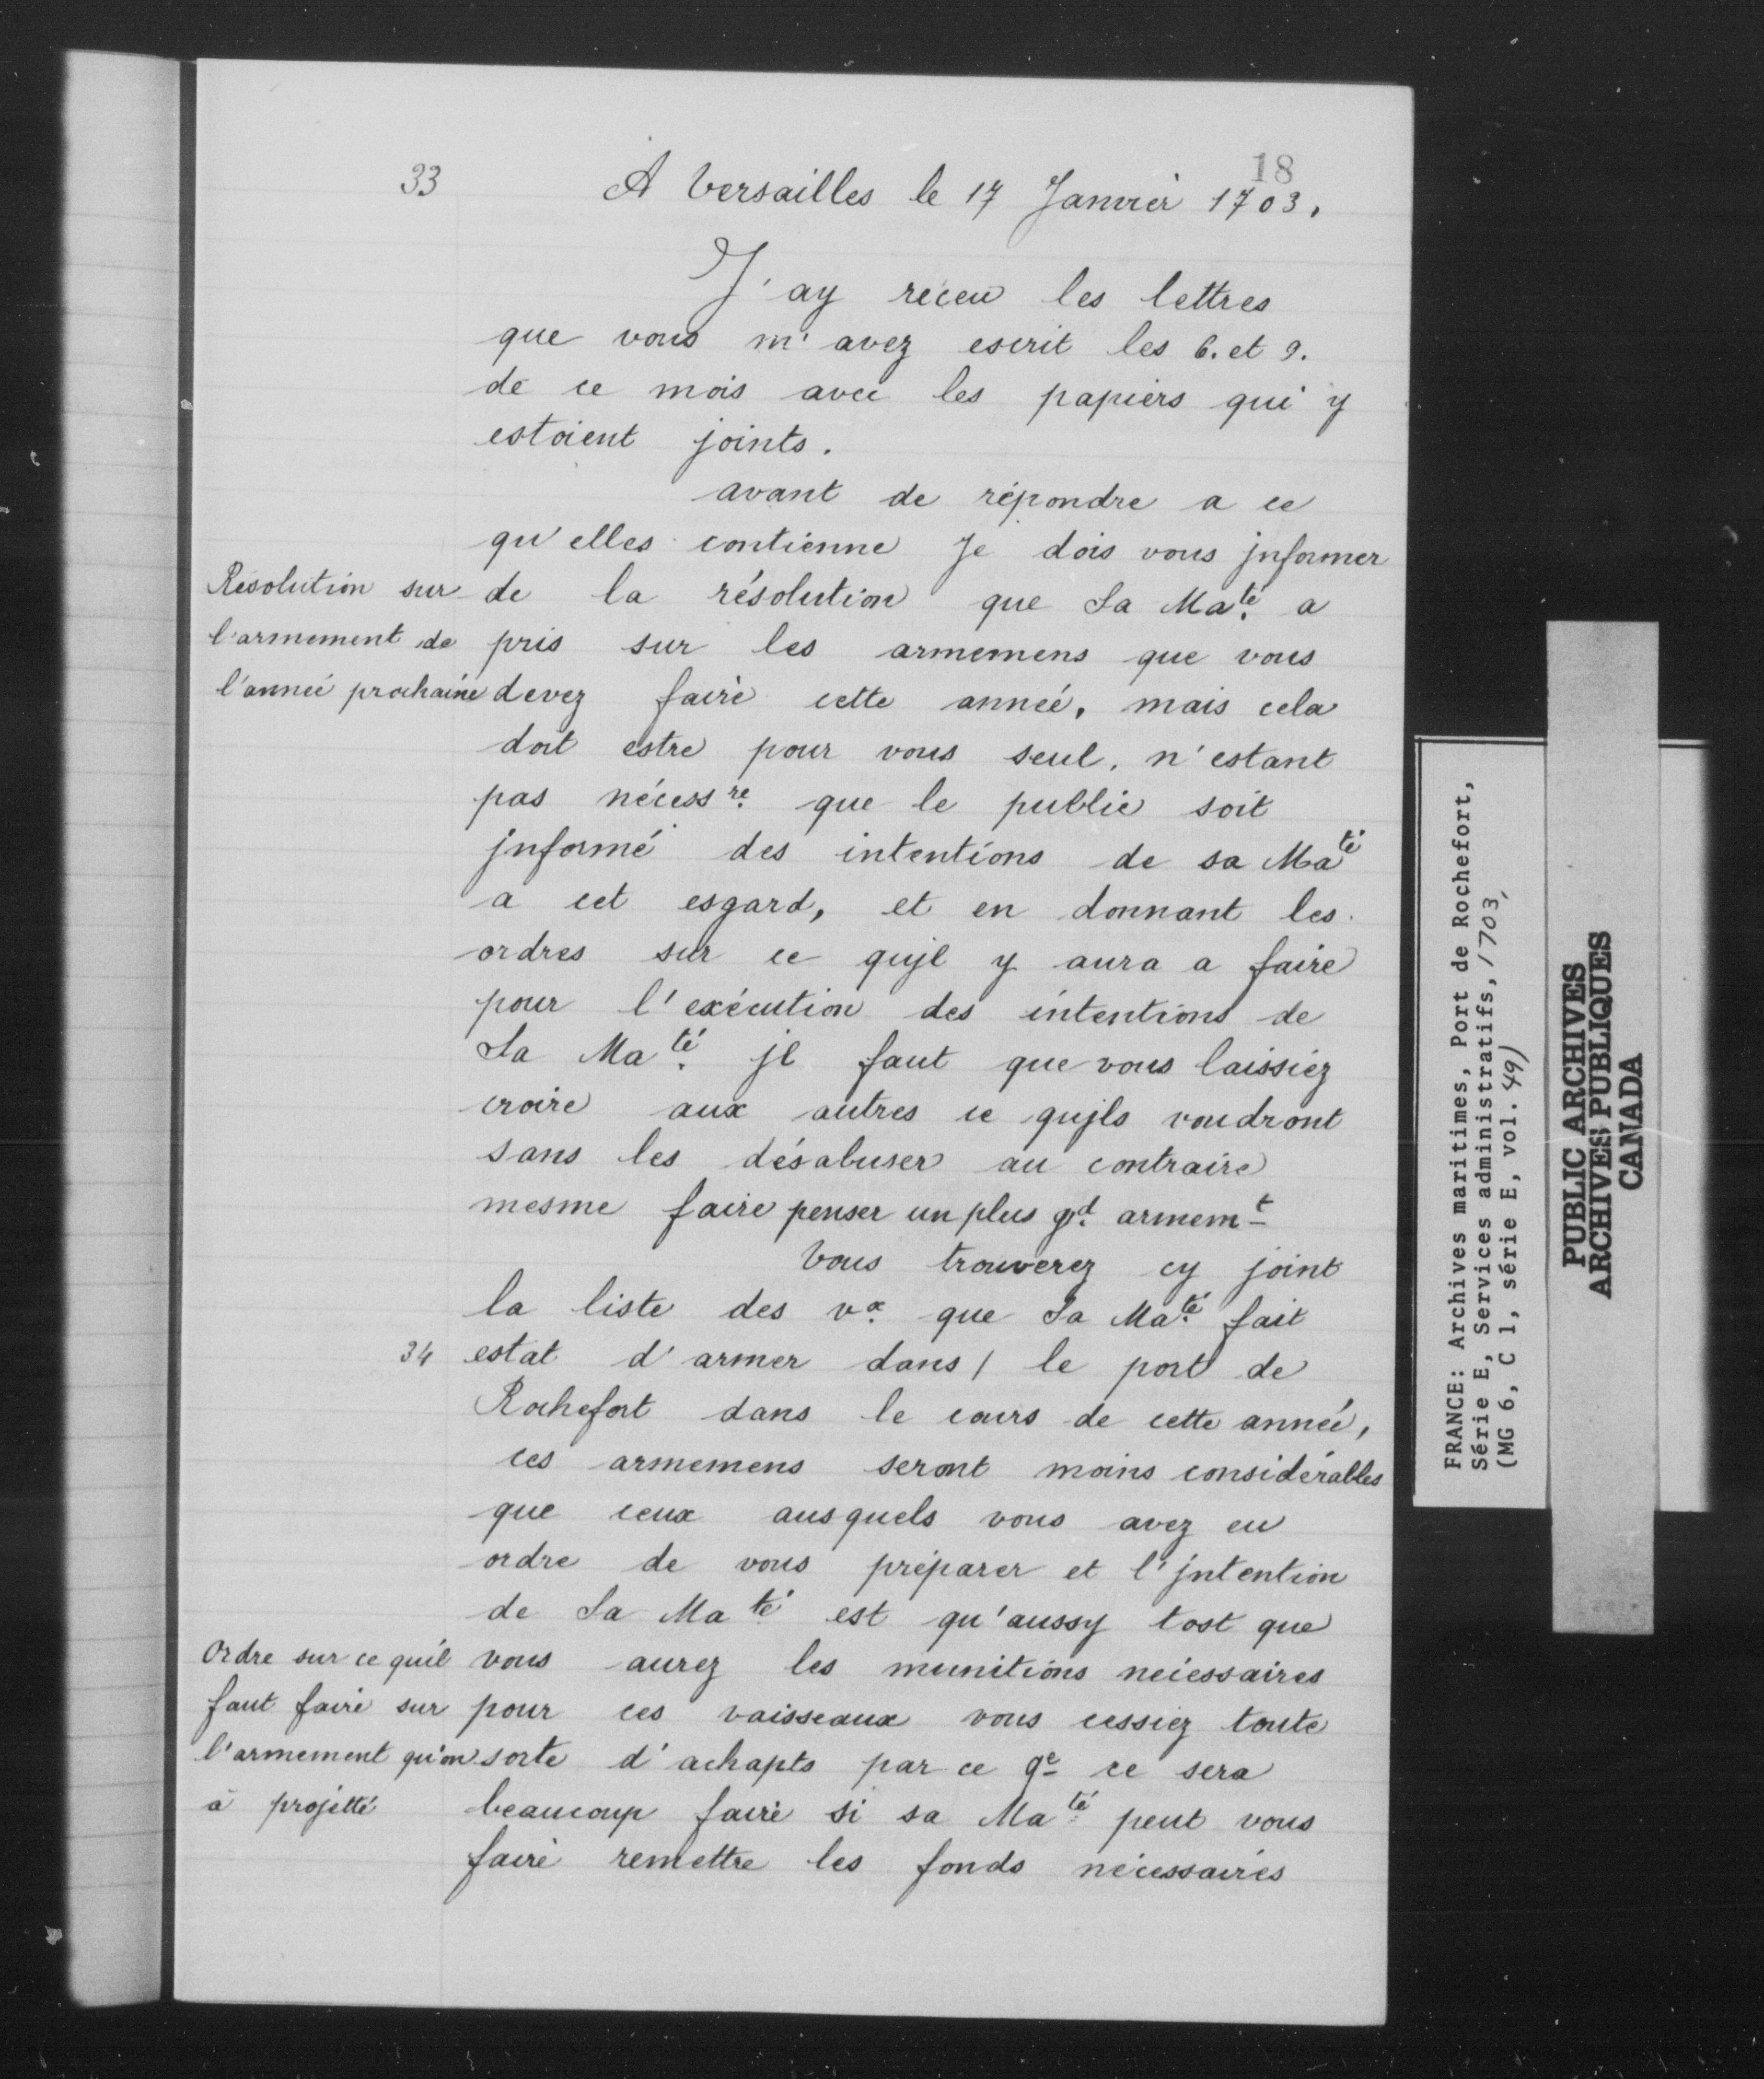 18
33 A Versailles le 17 Janvier 1703.
J'ay receu les lettres
que vous m'avez escrit les 6. et 9.
de ce mois avec les papiers qui y
estoient joints.
avant de répondre a ce
qu'elles contienne Je dois vous jnformer
Résolution sur
l'armement de
l'année prochaine
de la résolution que Sa Maté. a
pris sur les armemens que vous
devez faire cette année, mais cela
doit estre pour vous seul, n'estant
pas nécessre. que le public soit
jnformé des intentions de sa Maté
a cet esgard, et en donnant les
ordres sur ce qujl y aura a faire
pour l'exécution des intentions de
Sa Maté. jl faut que vous laissiez
croire aux autres ce qujls voudront
sans les désabuser au contraire
mesme faire penser un plus gd. armemt
Vous trouverez cy joint
la liste des vx. que Sa Maté. fait
34 estat d'armer dans / le port de
Rochefort dans le cours de cette année,
ces armemens seront moins considérables
que ceux ausquels vous avez eu
ordre de vous préparer et l'jntention
de Sa Maté est qu'aussy tost que
Ordre sur ce quil
faut faire sur
l'armement qu'on
a projetté
vous aurez les munitions nécessaires
pour ces vaisseaux vous cessiez toute
sorte d'achapts par ce qe ce sera
beaucoup faire si sa Maté peut vous
faire remettre les fonds nécessaires
FRANCE: Archives maritimes, Port de Rochefort,
Série E, Services administratifs, 1703,
(MG 6, C 1, série E, vol. 49)
PUBLIC ARCHIVES
ARCHIVES PUBLIQUES
CANADA